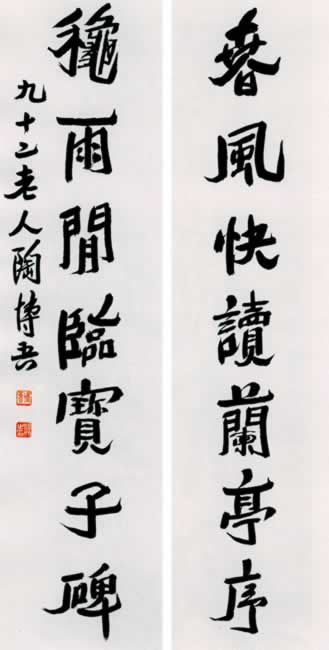 春風快讀蘭亭序
穐雨閒臨寶子碑
九十二老人陶博吾